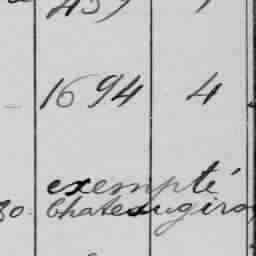 1694 4
exempté
80. Chateaugiron